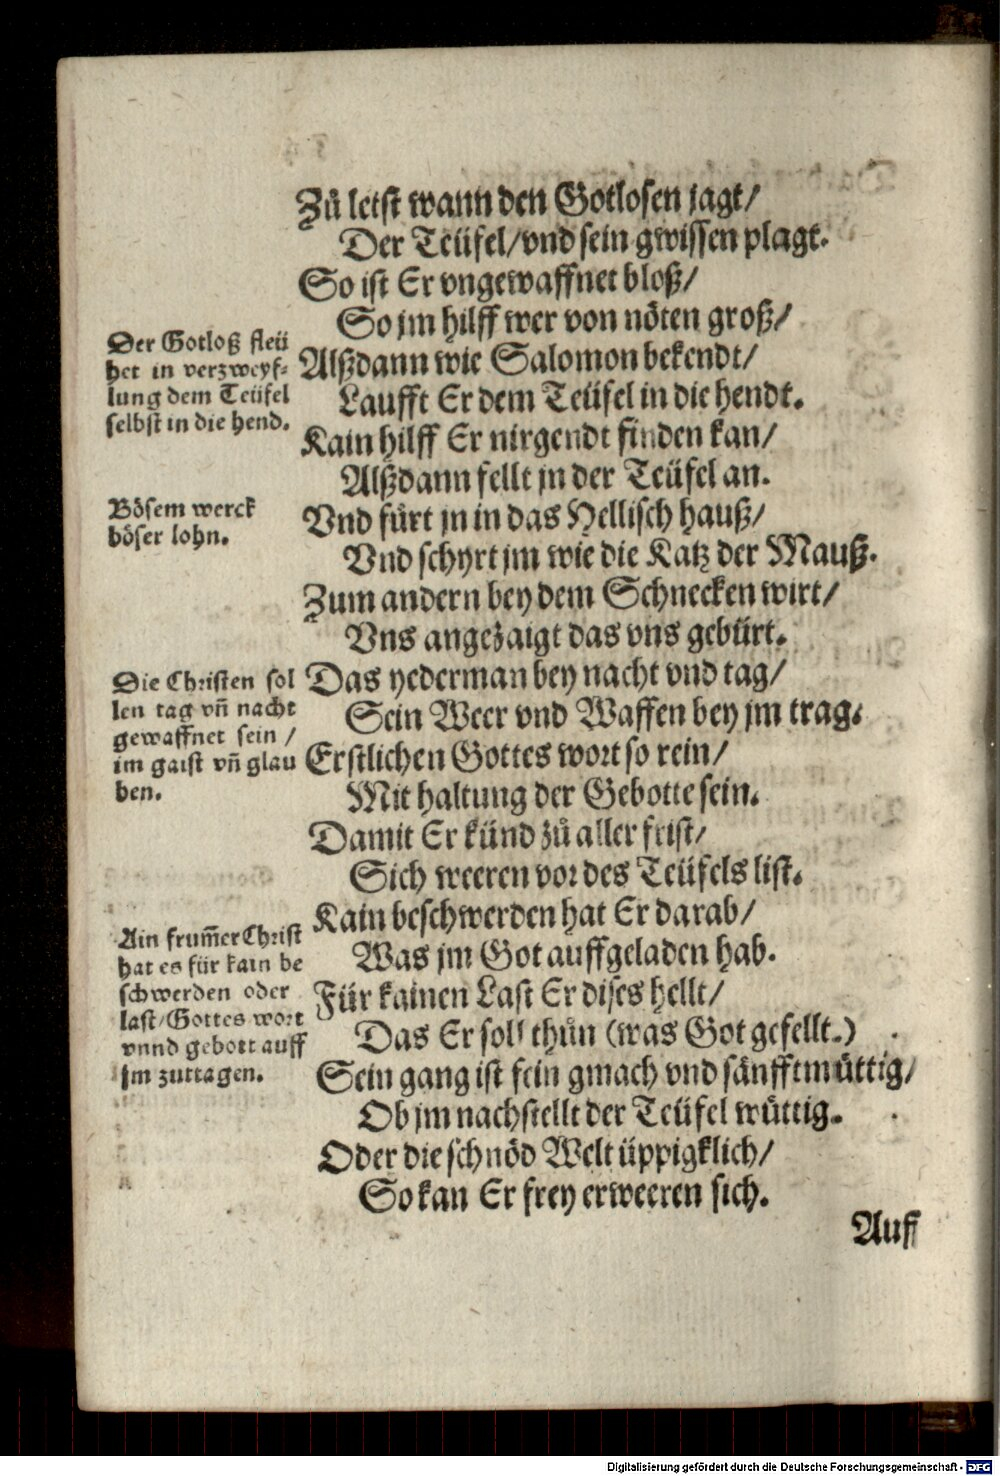 Zů letst wann den Gotlosen jagt/
Der Teüfel/vnd sein gwissen plagt.
So ist Er vngewaffnet bloß/
So jm hilff wer von nöten groß/
Alßdann wie Salomon bekendt/
Laufft Er dem Teüfel in die hendt.
Kain hilff Er nirgendt finden kan/
Alßdann fellt jn der Teüfel an.
Vnd fürt jn in das Hellisch hauß/
Vnd schyrt jm wie die Katz der Mauß.
Zum andern bey dem Schnecken wirt/
Vns angezaigt das vns gebürt.
Das yederman bey nacht vnd tag/
Sein Weer vnd Waffen bey jm trag.
Erstlichen Gottes wort so rein/
Mit haltung der Gebotte sein.
Damit Er künd zů aller frist/
Sich weeren vor des Teüfels list.
Kain beschwerden hat Er darab/
Was jm Got auffgeladen hab.
Für kainen Last Er dises hellt/
Das Er soll thůn (was Got gefellt.)
Sein gang ist fein gmach vnd sänfftmüttig/
Ob jm nachstellt der Teüfel wüttig.
Oder die schnöd Welt üppigklich/
So kan Er frey erweeren sich.
Auff
Der Gotloß fleü
het in verzweyf-
lung dem Teüfel
selbst in die hend.
Bösem werck
böser lohn.
Die Christen sol
len tag vñ nacht
gewaffnet sein /
im gaist vñ glau
ben.
Ain frum̃er Christ
hat es für kain be
schwerden oder
last/Gottes wort
vnnd gebott auff
jm zuttagen.
Digitalisierung gefördert durch die Deutsche Forschungsgemeinschaft - DFG